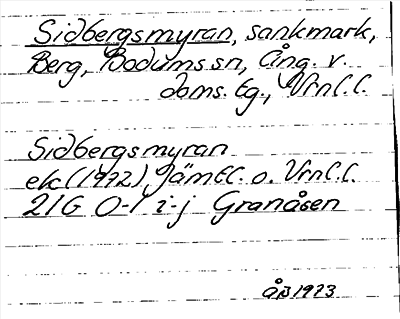 Sidbergsmyran, sankmark,
Berg, Bodums sn, Ång. v.
doms. Eg., Vrnl.l.
Sidbergsmyran
ek (1972) Jämtl. o. Vrnl.l.
21G 0-1 i-j Granåsen
ÅB 1973